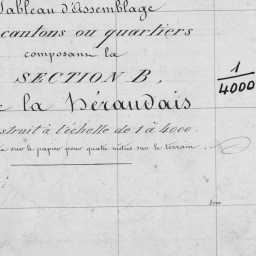 Tableau d'Assemblage
cantons ou quartiers
composant la
SECTION B,
la Héraudais
construit à l'échelle de 1 à 4000.
sur le papier pour quatre mètres sur le terrain.
1
4000